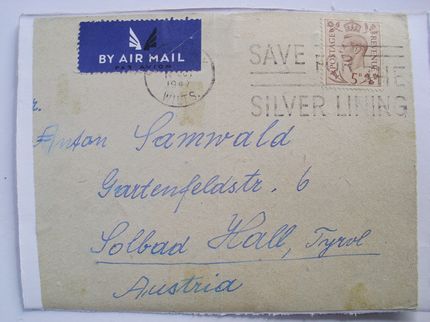 BY AIR MAIL
PAR AVION
194
WILTS.
SAVE FOR THE
SILVER LINING
POSTAGE
REVENUE
5D
r.
Anton Samwald
Gartenfeldstr. 6
Solbad Hall, Tyrol
Austria